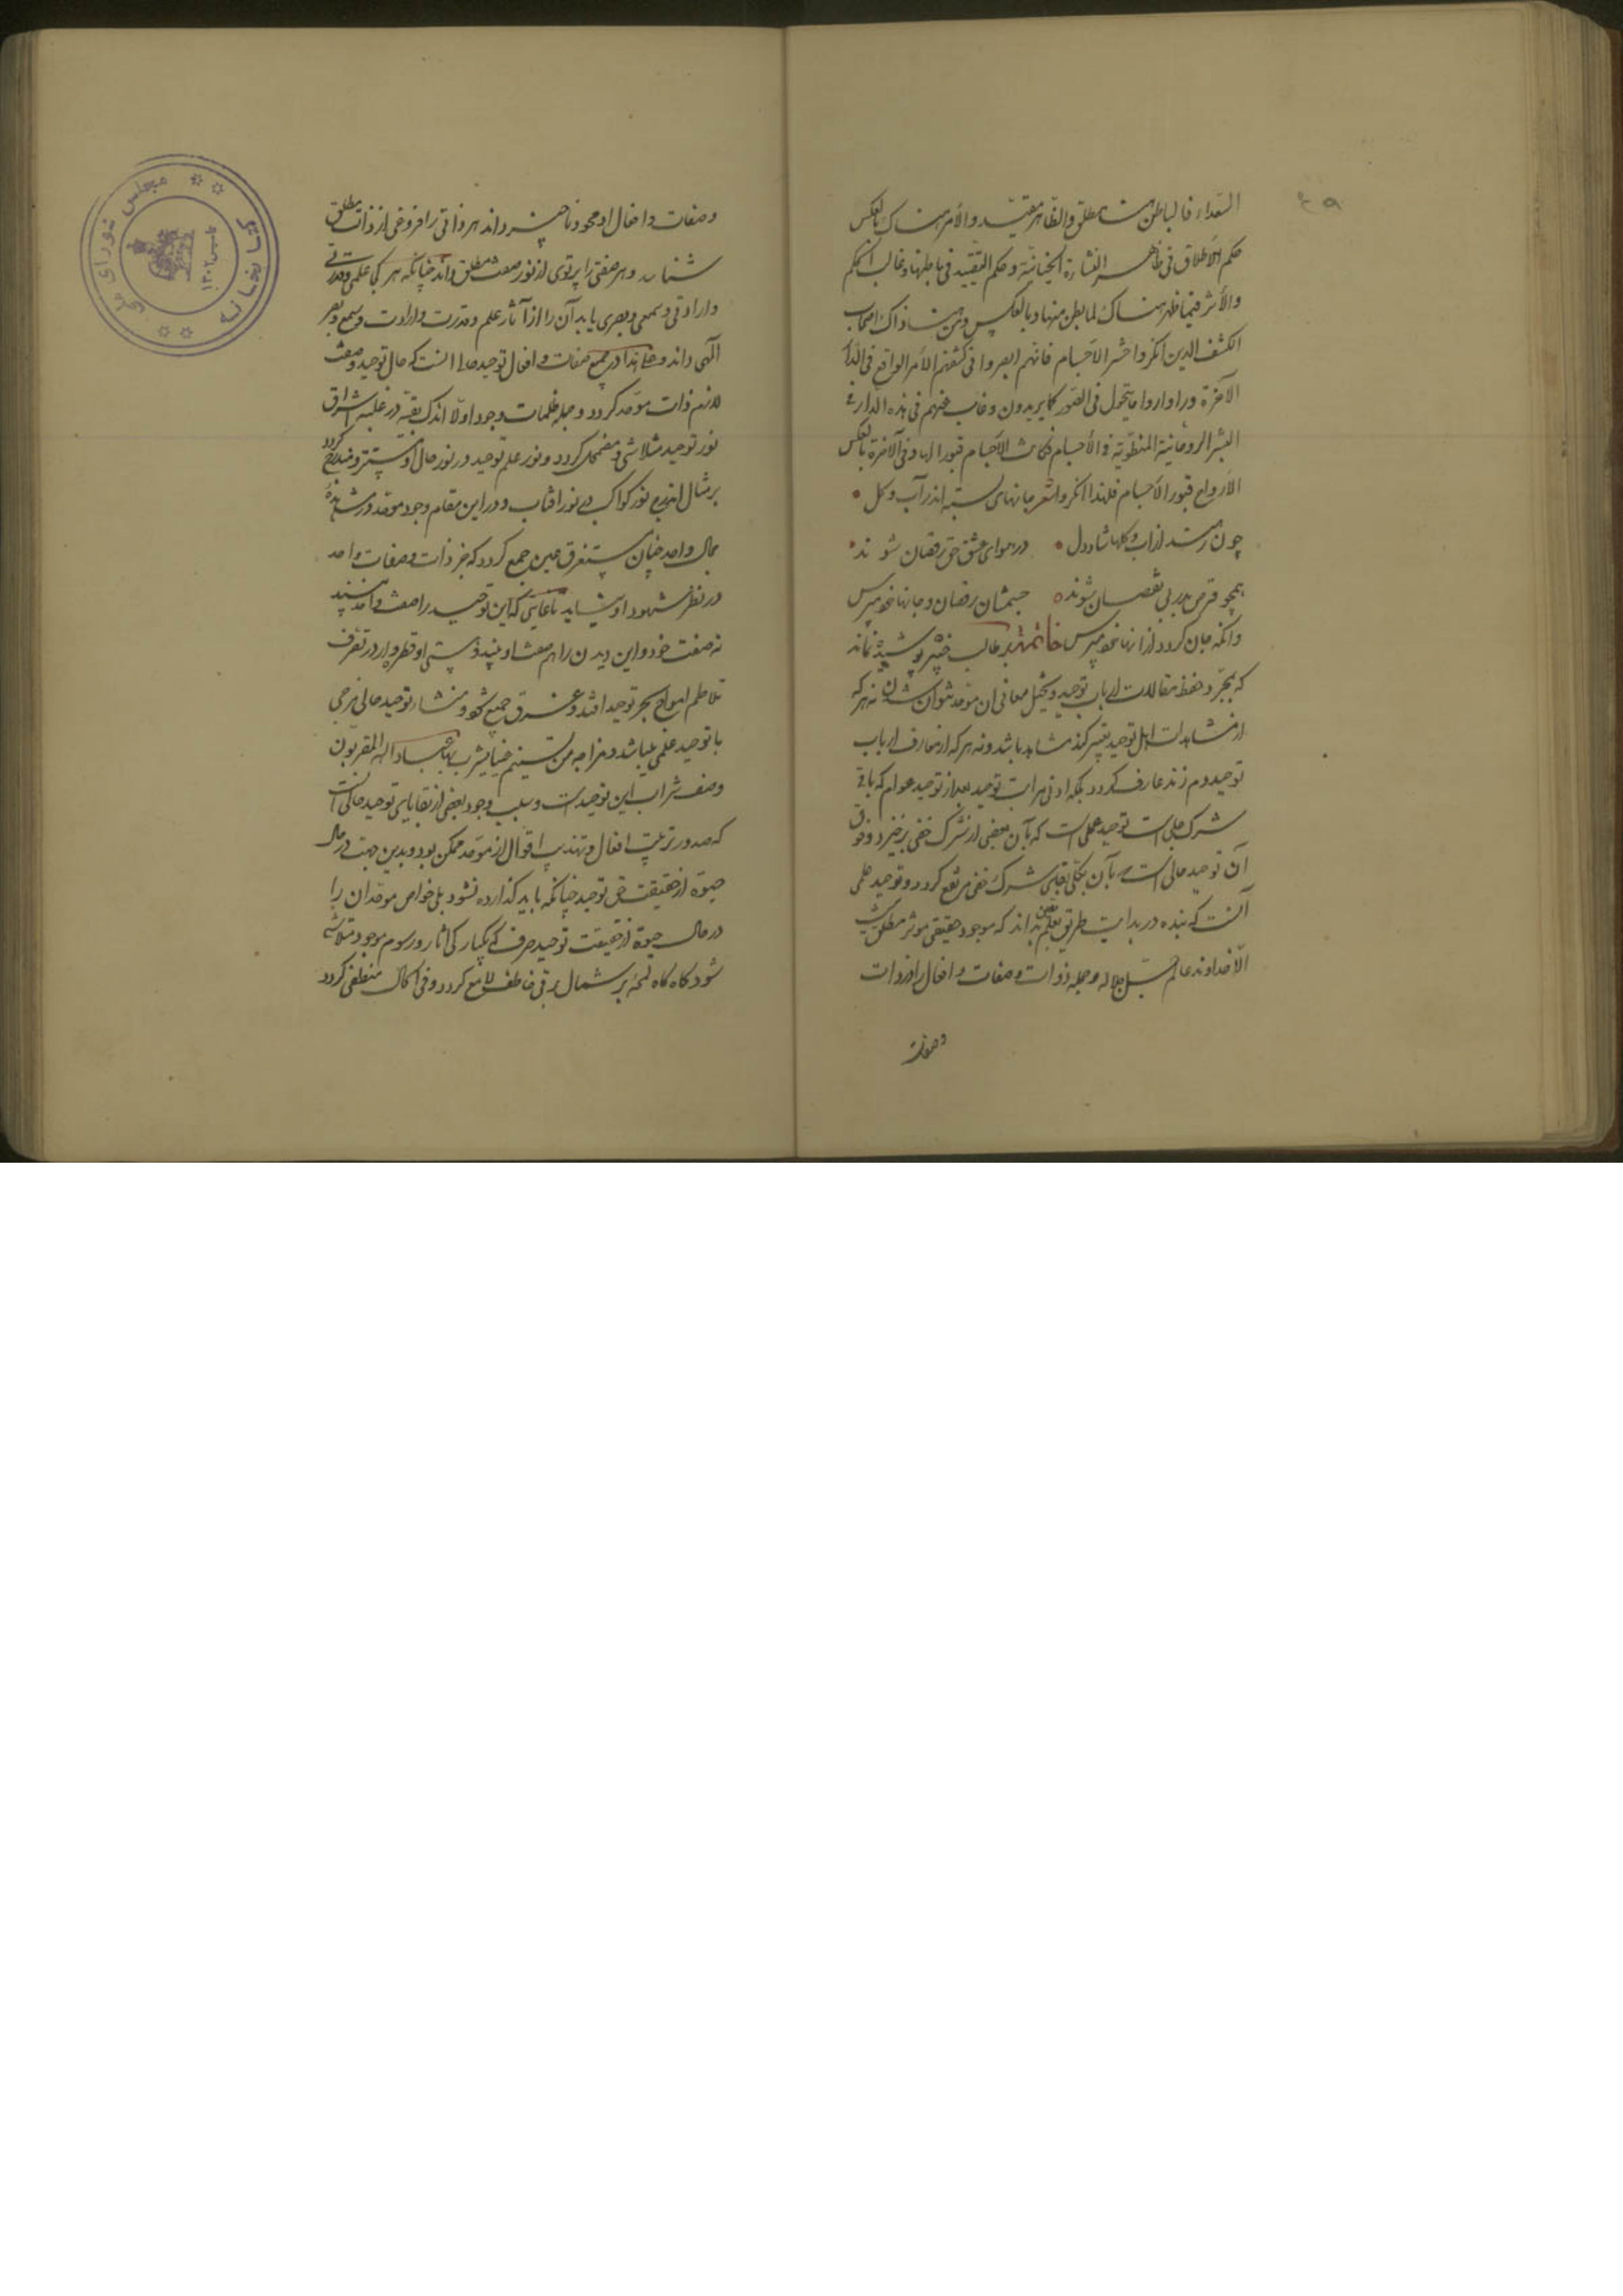 السعداء فالباطن هنا مطلق والظاهر مقید والأمر هناک بالعکس
حکم الاطلاق فی ظاهر النشاءة الجنانیة وحکم التقیید فی باطنها وغالب الحکم
والأثر فیما ظهر هناک لما بطن منها وبالعکس وهن هنا ذاک اصحاب
الکشف الذین انکروا حشر الاجسام فانهم ابصروا فی کشفهم الأمر الواقع فی الدار
الآخرة وراوا ارواحا یتحول فی الصور کما یریدون وغاب عنهم فی هذه الدار فی
النشر الروحانیة المنطویة فی الأجسام فکانت الاجسام قبورا لها وفی الآخرة بالعکس
الأرواح قبور الاجسام فلهذا انکروا شعر جانهای بسته اندر آب و کل
چون رهند از آب و کلها شاد دل در هوای عشق حق رقصان شوند
همچو قرص بدر بی نقصان شوند جسمشان رقصان و جانها خود مپرس
وانکه جان کردد از انها خود مپرس خاتمه بر طالب خبیر پوشیده نماند
که بمجرد حفظ مقالات ارباب توحید و تخیل معانی ان موحد نتوان شد نه هر که
از مشاهدات اهل توحید تعبیر کند مشاهد باشد و نه هر که از معارف ارباب
توحید دم زند عارف کردد بلکه ادنی مراتب توحید بعد از توحید عوام که باقی
شرک جلی است توحید علمی است که بآن بعضی از شرک خفی برخیزد و فوق
آن توحید حالی است که بآن بکلی بقایای شرک خفی مرتفع کردد و توحید علمی
آنست که بنده در بدایت طریق بعلم یقین بداند که موجود حقیقی و مؤثر مطلق نیست
الا خداوند عالم جل جلاله و جمله ذوات و صفات و افعال را در ذات
وصفات
و صفات و افعال او محو و ناچیز داند هر ذاتی را فروغی از ذات مطلق
شناسد و هر صفتی را پرتوی از نور صفت مطلق داند چنانکه هر کجا علمی و قدرتی
و ارادتی و سمعی و بصری یابد آن را از آثار علم و قدرت و ارادت و سمع و بصر
الهی داند و علی هذا در جمیع صفات و افعال توحید حالی آنست که حال توحید وصف
لازم ذات موحد کردد و جمله ظلمات وجود او الا اندک بقیه در غلبه اشراق
نور توحید متلاشی و مضمحل کردد و نور علم توحید در نور حال او مستتر و مندرج کردد
بر مثال اندراج نور کواکب در نور افتاب و در این مقام وجود موحد در مشاهده
جمال واحد چنان مستغرق عین جمع کردد که جز ذات و صفات واحد
در نظر شهود او نیاید تا غایتی که این توحید را صفت واحد بیند
نه صفت خود و این دیدن را هم صفت او بیند و هستی او قطره وار در تصرف
تلاطم امواج بحر توحید افتد و غرق جمع شود و منشاء توحید حالی ترجی
با توحید علمی میباشد و مزاجه من تسنیم عینا یشرب بها عباد الله المقربون
وصف شراب این توحید است و بسبب وجود بعضی از بقایای توحید حالی است
که صدور ترتیب افعال و تهذیب اقوال از موحد ممکن بود و بدین جهت در حال
حیوة از حقیقت حق توحید چنانکه باید کذارده نشود بلی خواص موحدان را
در حال حیوة از حقیقت توحید صرف که یکبارکی آثار و رسوم موجود متلاشی
شود کاه کاه لمحه بر مثال برقی خاطف لامع کردد و فی الحال منطفی کردد
کتابخانه مجلس شورای ملی
تاسیس ۱۳۰۲